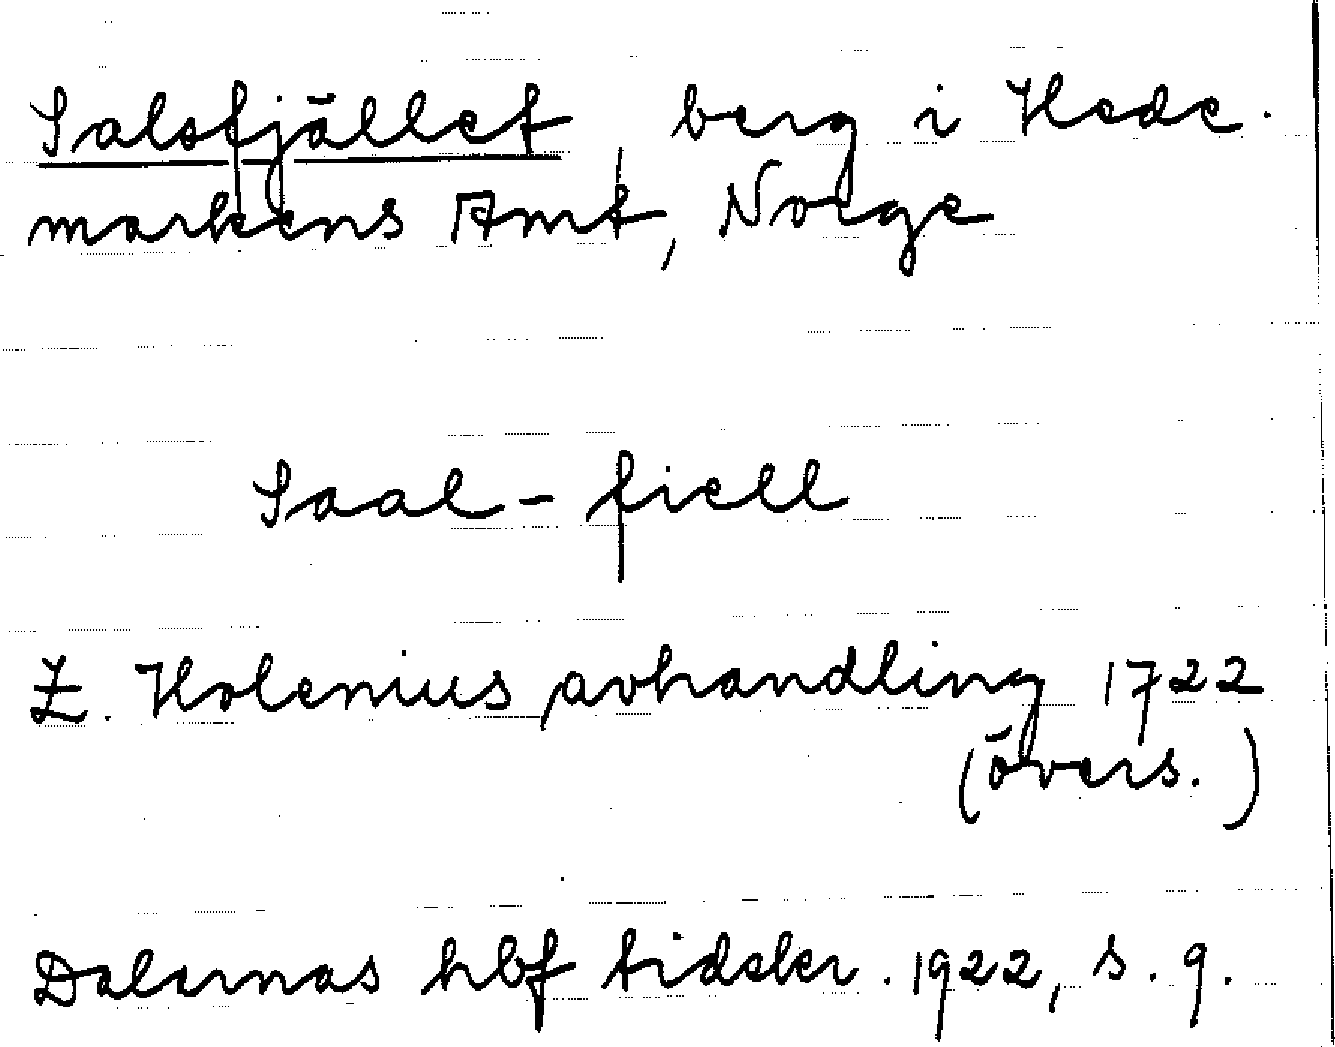 Salsfjället, berg i Hede-
markens Amt, Norge
Saal-fiell
E. Holenius avhandling 1722
(övers.)
Dalarnas hbf tidskr. 1922, s. 9.